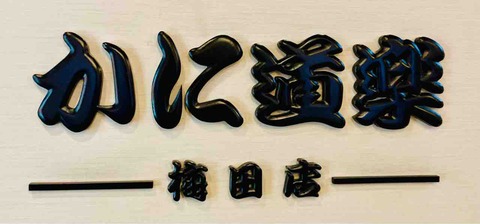 かに道樂
梅田店